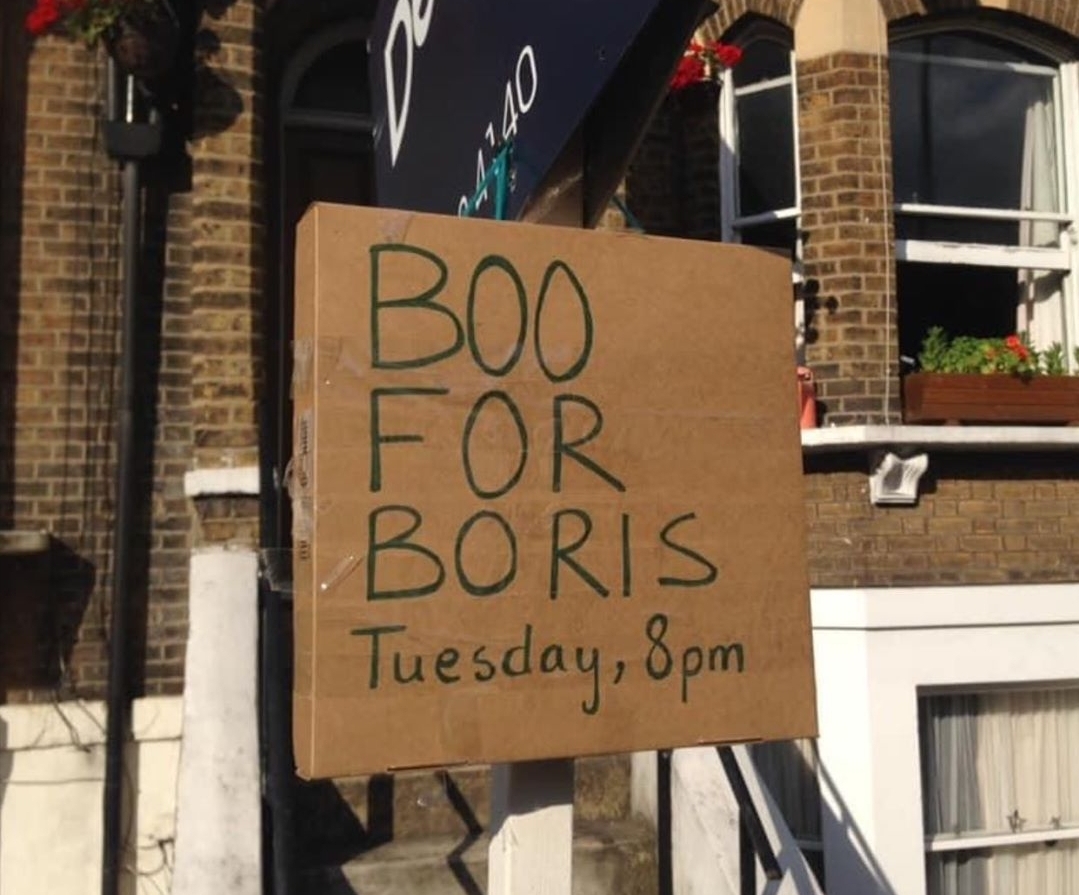 BOO
FOR
BORIS
Tuesday, 8pm